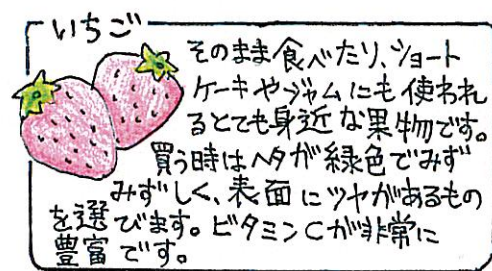 いちご
そのまま食べたり、ショート
ケーキやジャムにも使われ
るとても身近な果物です。
買う時はヘタが緑色でみず
みずしく、表面にツヤがあるもの
を選びます。ビタミンCが非常に
豊富です。